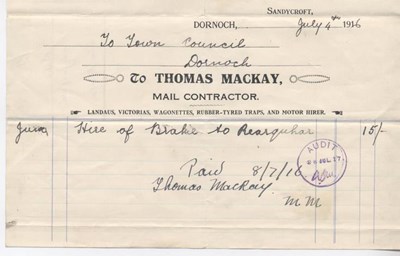 SANDYCROFT,
DORNOCH, July 4th 1916
To Town Council
Dornoch
To THOMAS MACKAY,
MAIL CONTRACTOR.
LANDAUS, VICTORIAS, WAGONETTES, RUBBER-TYRED TRAPS, AND MOTOR HIRER.
June Hire of Brake to Rearquhar 15/-
AUDIT
Paid 8/7/16
Thomas Mackay
M.M.